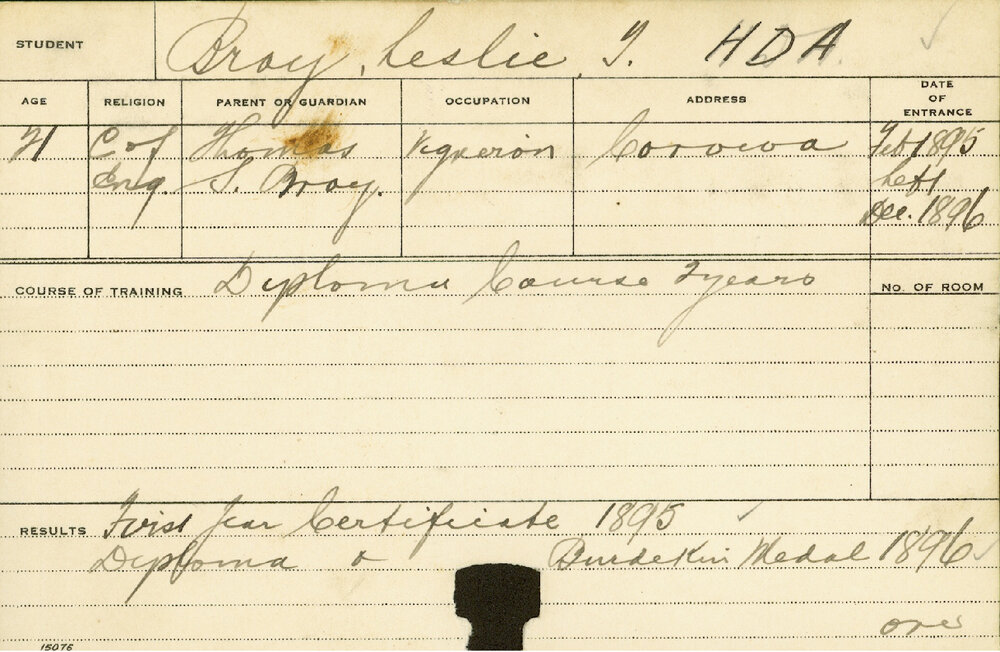 STUDENT Bray, Leslie, T. HDA
AGE RELIGION PARENT OR GUARDIAN OCCUPATION ADDRESS DATE OF ENTRANCE
21 C of Thomas Vigneron Corowa Feb 1895
Eng. S. Bray. Left
Dec. 1896
COURSE OF TRAINING Diploma Course 2 years No. OF ROOM
RESULTS First Year Certificate 1895
Diploma Burdekin Medal 1896
over
15076